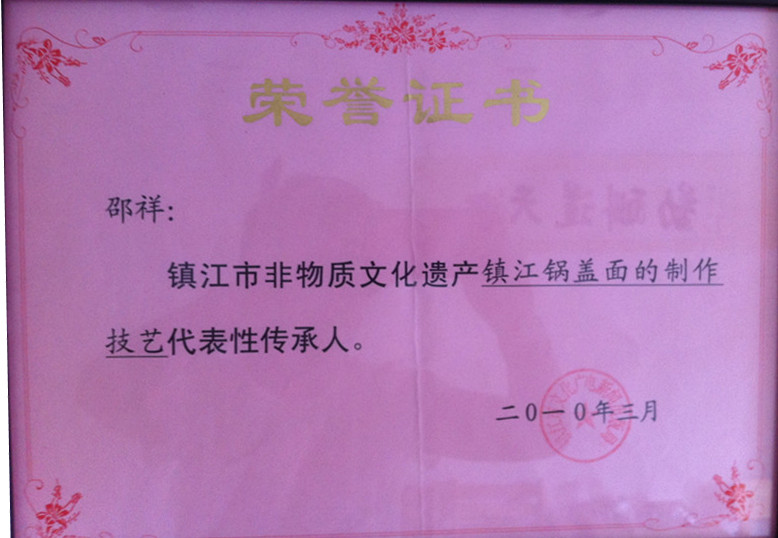 荣誉证书
邵祥:
镇江市非物质文化遗产镇江锅盖面的制作
技艺代表性传承人。
二0一0年三月
天道酬勤